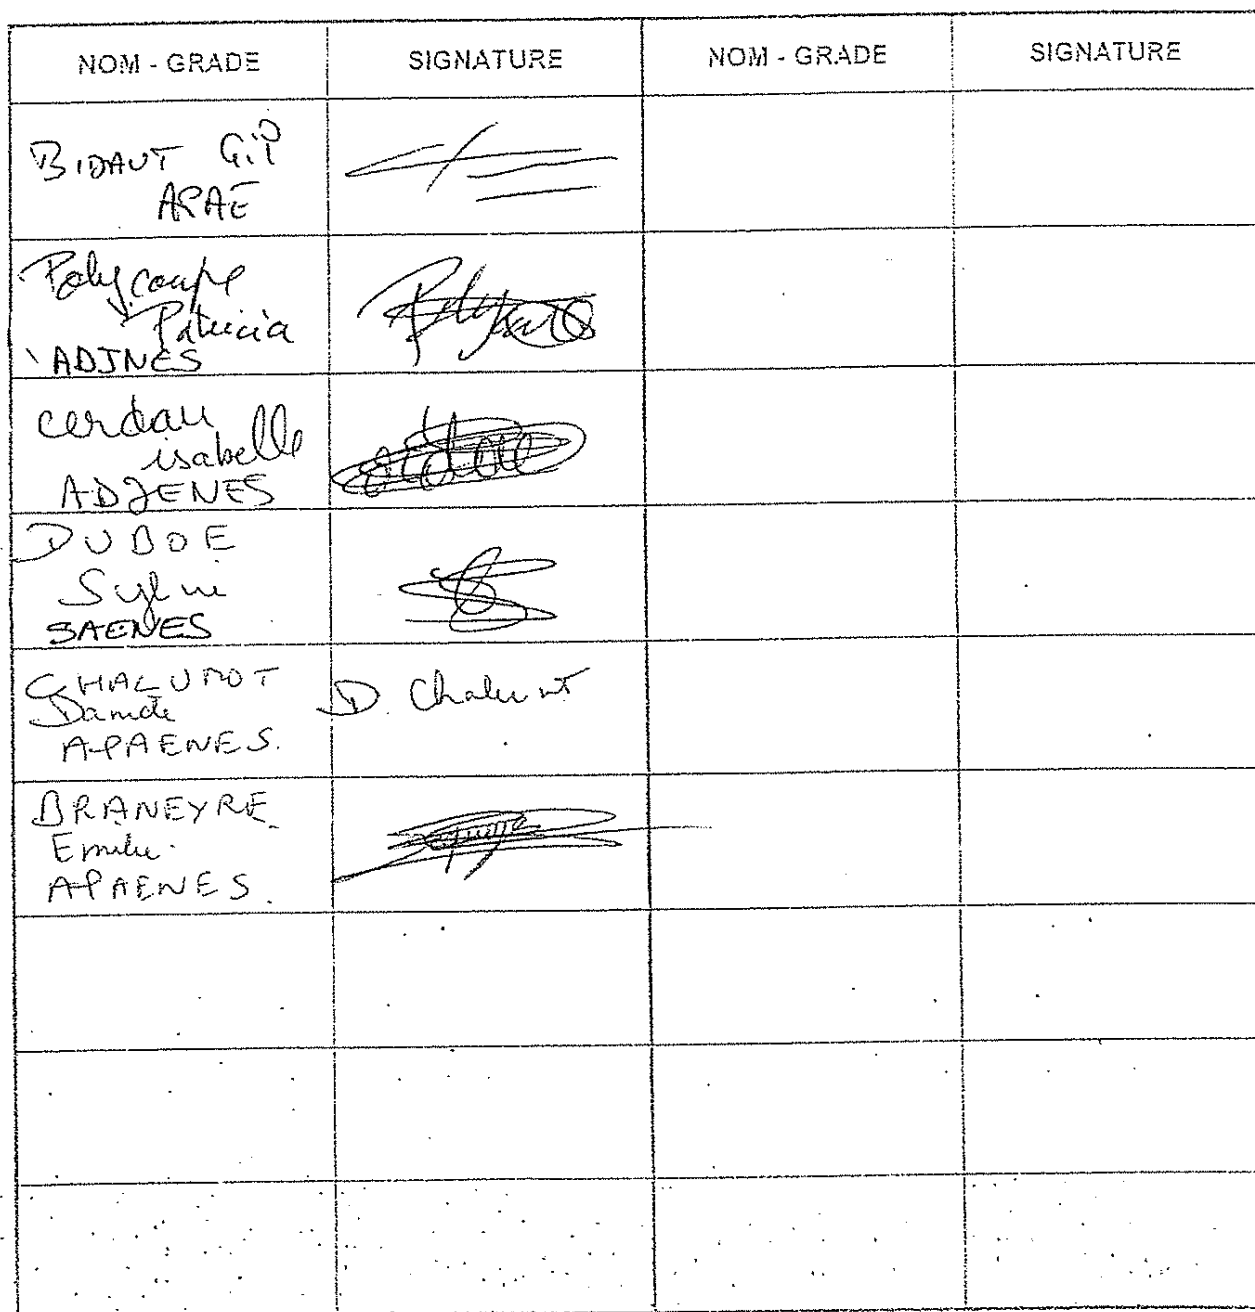 NOM - GRADE SIGNATURE NOM - GRADE SIGNATURE
BIDAUT
APAE
Polycarpe
Patricia
ADJNES
cerdan
isabelle
ADJENES
DUBOE
Sylvie
SAENES
CHALUMOT
APAENES.
D. Chalumot
BRANEYRE
Emilie
APAENES.